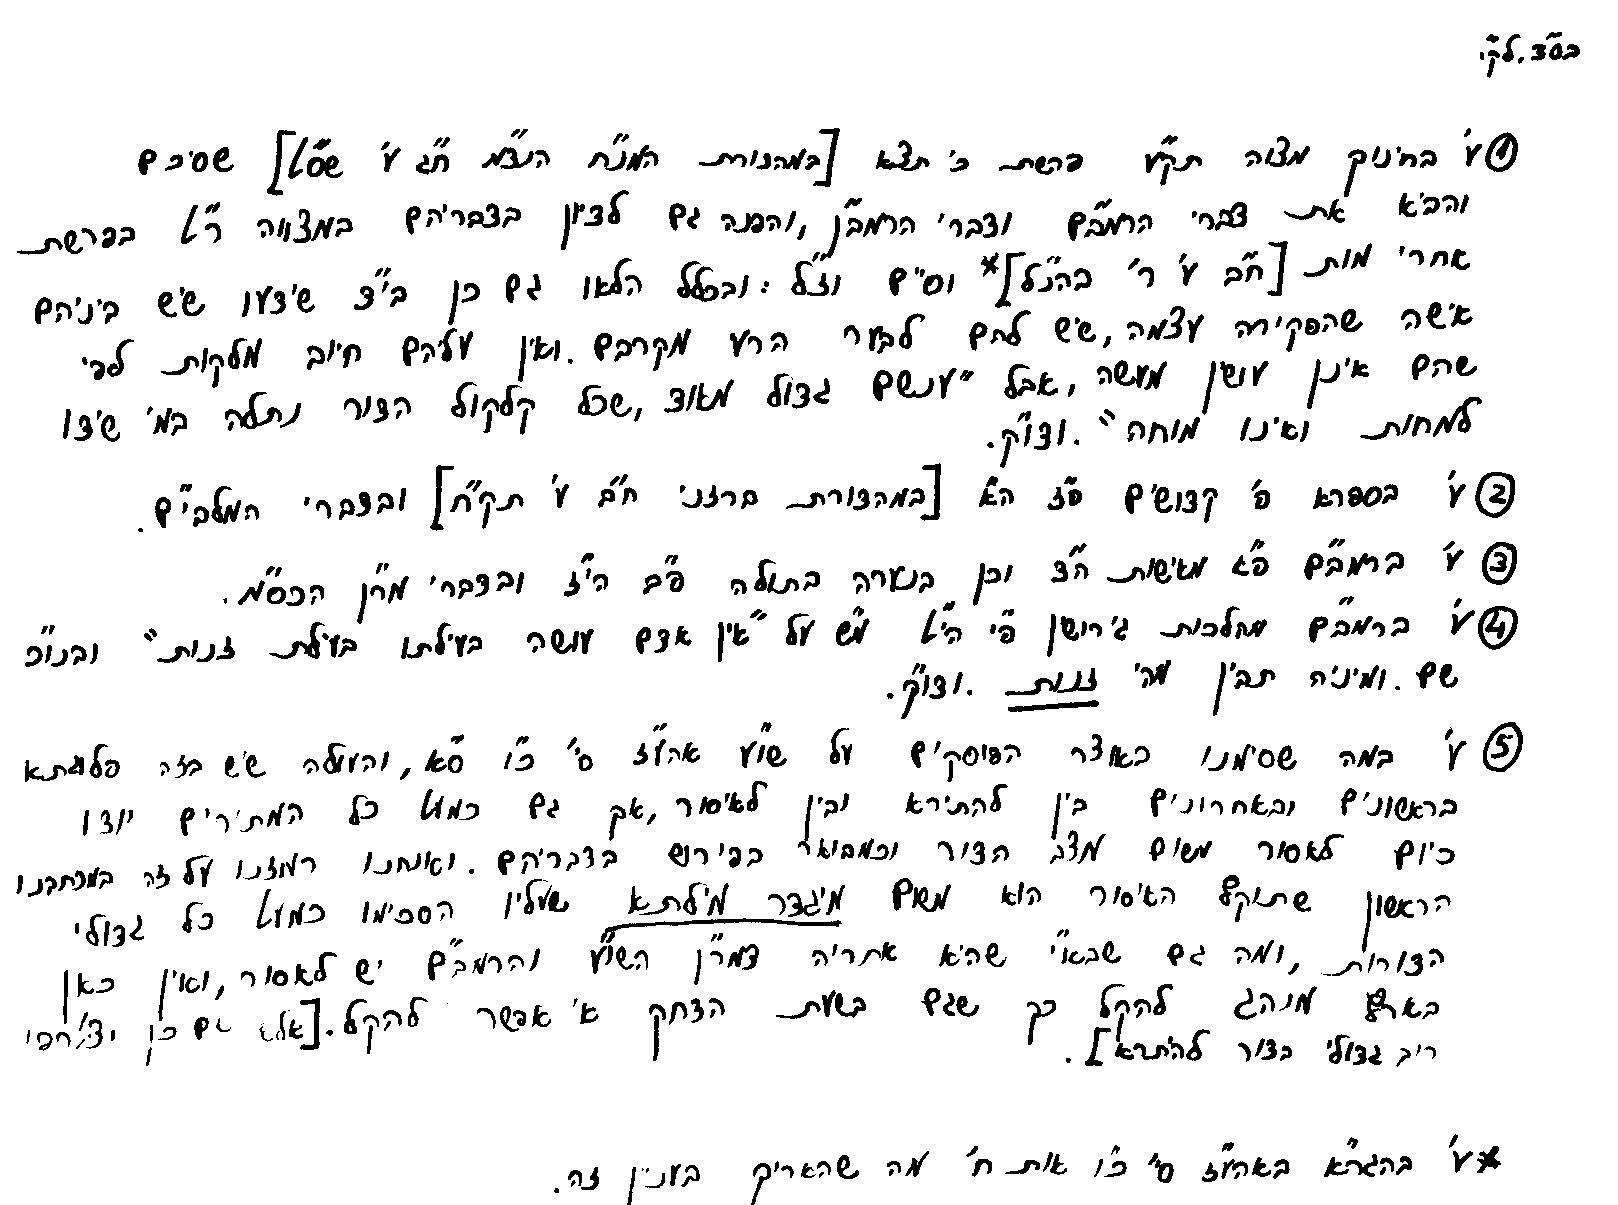 בס"ד. לק"י
① ע' בחינוך מצוה תק"ע פרשת כי תצא [במהדורת המנ"ח הנדמ"ח ח"ג ע' שס"ט] שסיכם
והביא את דברי הרמב"ם ודברי הרמב"ן, והפנה גם לציון בדבריהם במצווה ר"ט בפרשת
אחרי מות [ח"ב ע' ר' בהנ"ל]* וסיים וז"ל: ובכלל הלאו גם כן ב"ד שידעו שיש ביניהם
אישה שהפקירה עצמה, שיש להם לבער הרע מקרבם. ואין עליהם חיוב מלקות לפי
שהם אינן עושין מעשה, אבל "ענשם גדול מאוד, שכל קלקול הדור נתלה במי שידו
למחות ואינו מוחה". ודו"ק.
② ע' בספרא פ' קדושים פ"ז ה"א [במהדורת ברזני ח"ב ע' תק"ח] ובדברי המלבי"ם.
③ ע' ברמב"ם פ"ג מאישות ה"ד וכן בנערה בתולה פ"ב הי"ז ובדברי מר"ן הכס"מ.
④ ע' ברמב"ם מהלכות גירושין פ"י הי"ט מ"ש על "אין אדם עושה בעילתו בעילת זנות" ובנו"כ
שם. ומיניה תבין מהי זנות. ודו"ק.
⑤ ע' במה שסימנו באוצר הפוסקים על שו"ע אהע"ז סי' כ"ו ס"א, והעולה שיש בזה פלוגתא
בראשונים ובאחרונים בין להתירא ובין לאיסור, אך גם כמעט כל המתירים יודו
כיום לאסור משום מצב הדור וכמבואר בפירוש בדבריהם. ואנחנו רמזנו על זה במכתבנו
הראשון שתוקף האיסור הוא משום מיגדר מילתא שעליו הסכימו כמעט כל גדולי
הדורות, ומה גם שבא"י שהיא אתריה דמר"ן השו"ע והרמב"ם יש לאסור, ואין כאן
בארץ מנהג להקל כך שגם בשעת הדחק אי אפשר להקל. [אלא אם כן יצטרפו
רוב גדולי הדור להיתרא].
* ע' בהגר"א באהע"ז סי' כ"ו אות ח' מה שהאריך בענין זה.